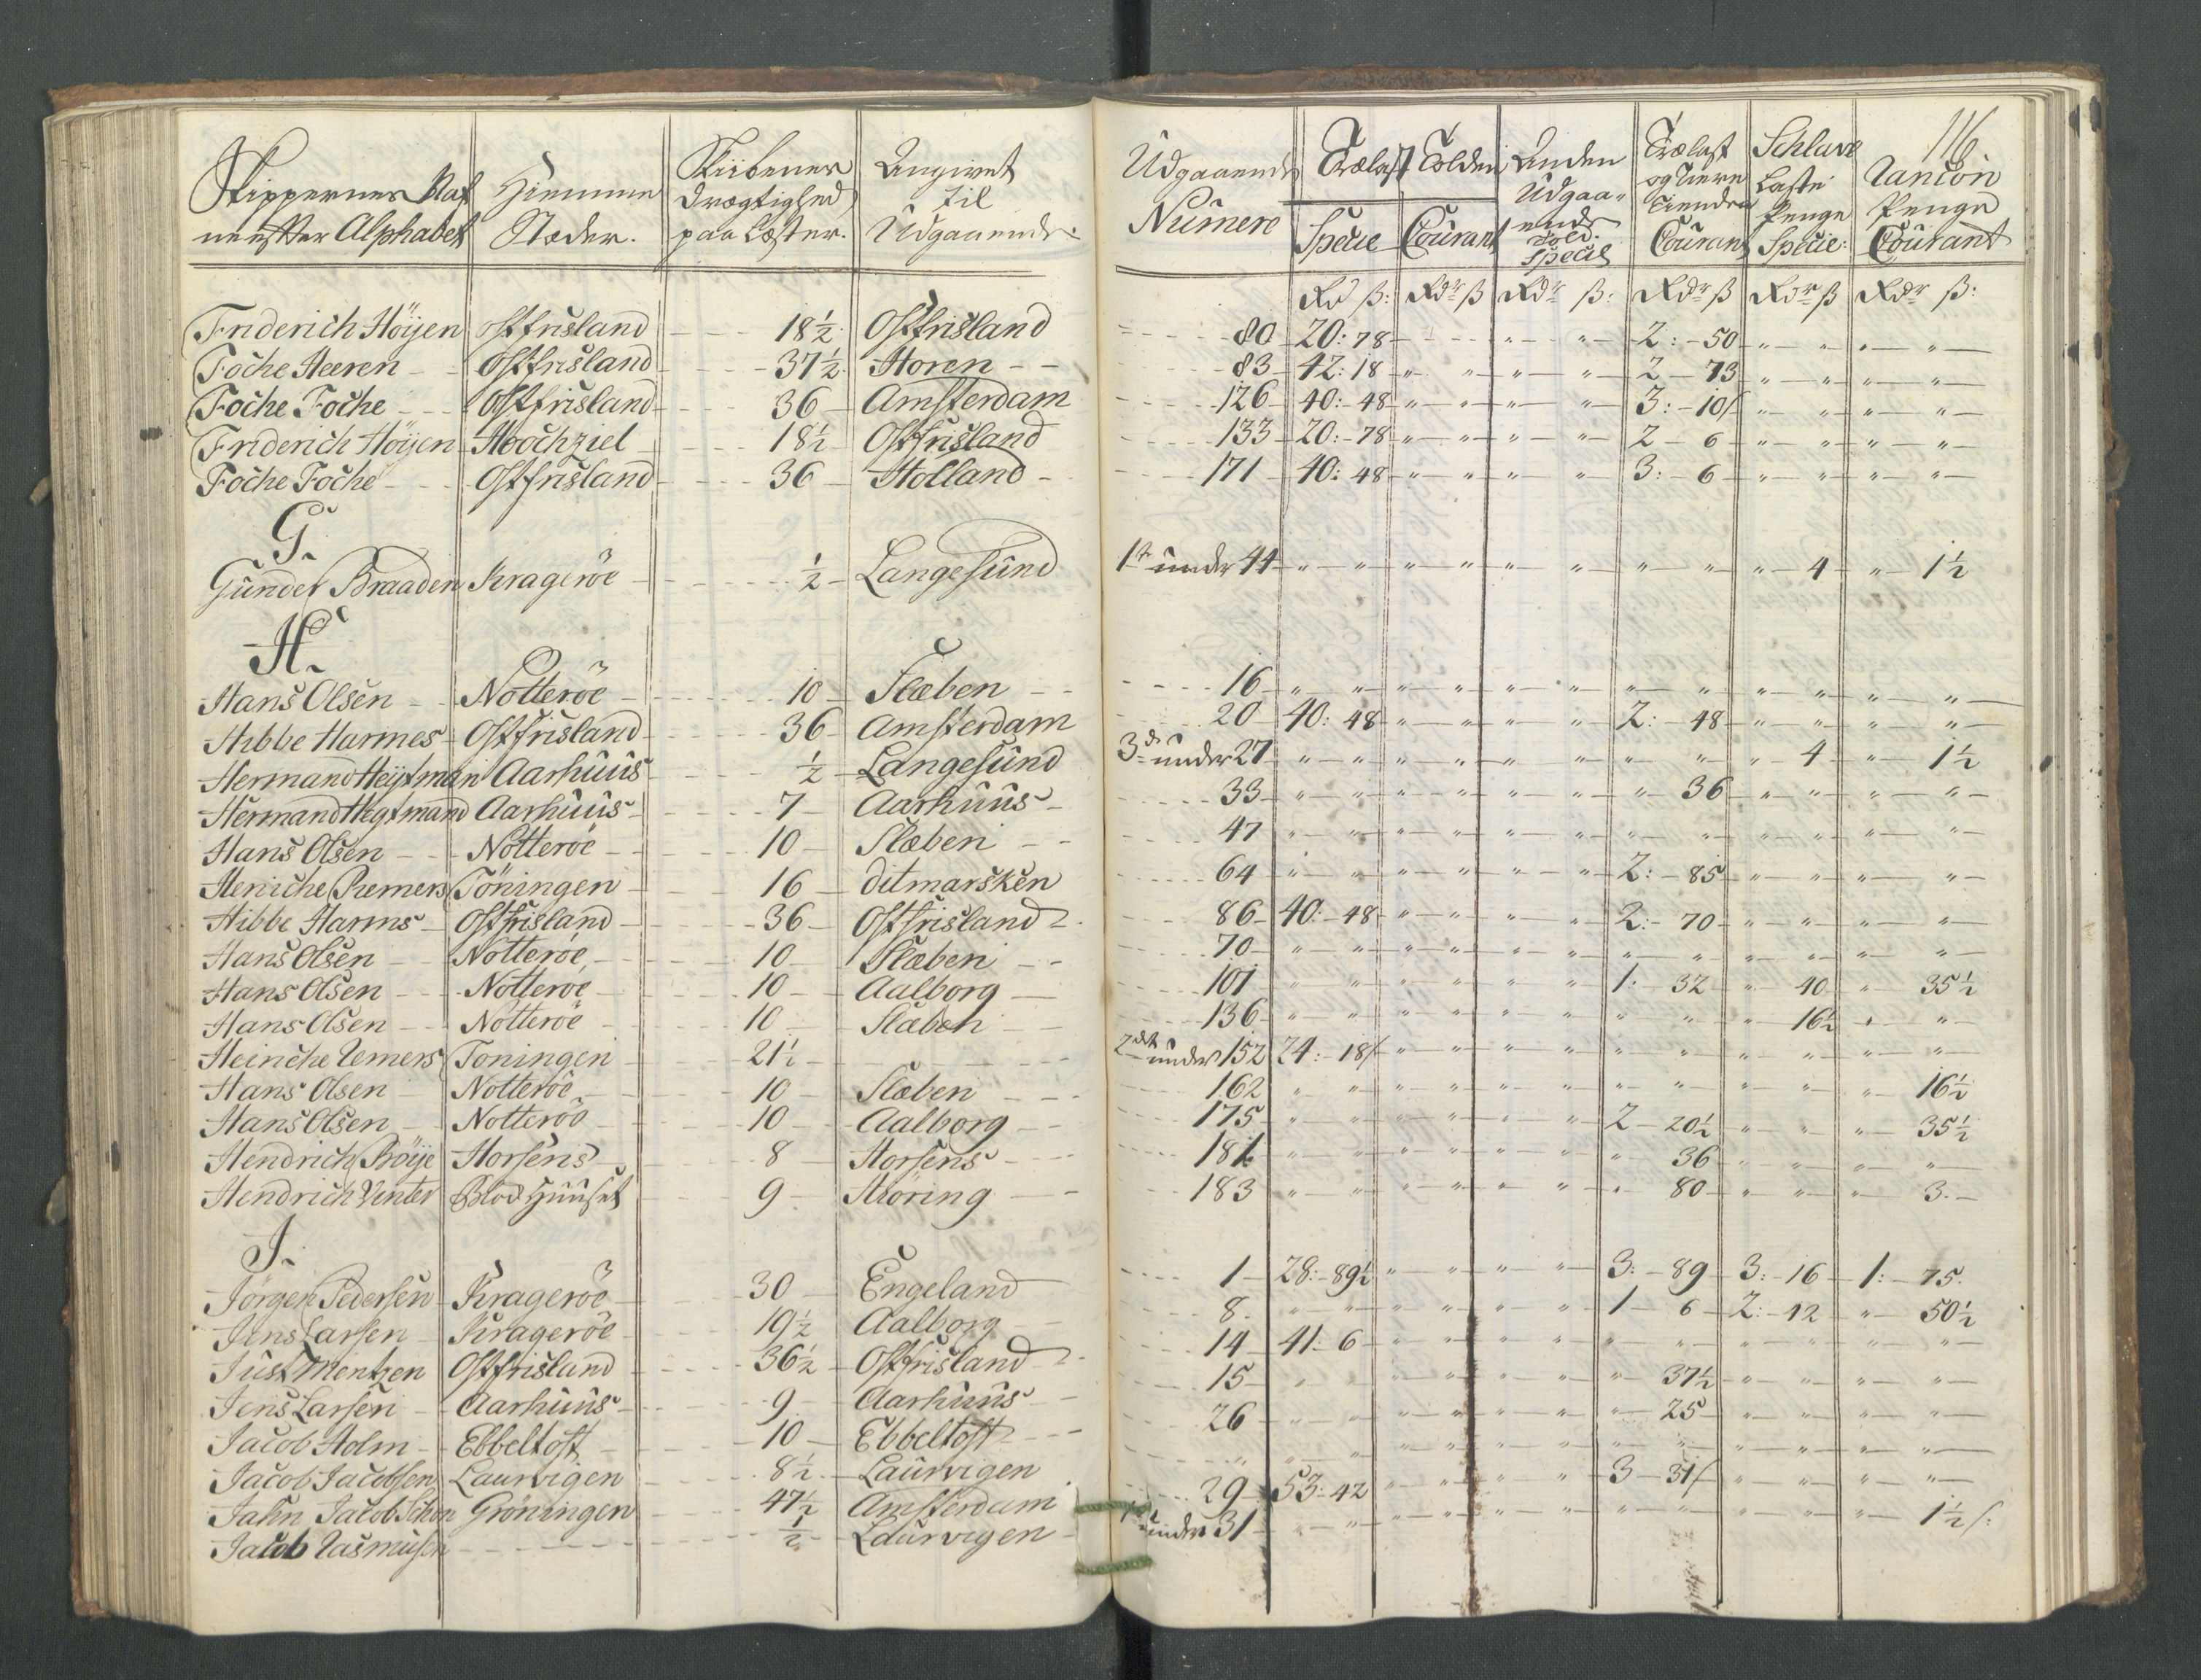 116
Skippernes Naf Hiemme Skiibenes Angivet Udgaaende Trælast Tolden Anden Trælast Schluse Rancon
neefter Alphabet Stæder. Drægtighed til Numere Specie Courant Udgaa- og Tiere Laste Penge
paa Læster. Udgaaende. ende Told. Specie Tiender Courant Penge Specie: Courant
Rd ß: Rdr ß Rdr ß: Rdr ß Rdr ß Rdr ß:
Friderich Höijen Ostfrisland 18½ Ostfrisland 80 20:78 " " 2:-50 " " " "
Foche Heeren Ostfrisland 37½ Horen 83 42:18 " " " " 2-73 " " " "
Foche Foche Ostfrisland 36 Amsterdam 126 40:48 " " " " 3:-10/ " " " "
Friderich Höijen Hoochziel 18½ Ostfrisland 133 20:-78 " " " " 2-6 " " " "
Foche Foche Ostfrisland 36 Holland 171 40:48 " " " " 3:-6 " " " "
G.
Gunder Braaden Krageröe ½ Langesund 1te under 44 " " " " " " " " " 4 " 1½
H.
Hans Olsen Nötteröe 10 Slæben 16 " " " " " " " " " " " "
Hibbe Harmes Ostfrisland 36 Amsterdam 20 40:48 " " " " 2:-48 " " " "
Hermand Heijtman Aarhuus ½ Langesund 3de under 27 " " " " " " " " " 4 " 1½
Hermand Hegtmand Aarhuus 7 Aarhuus 33 " " " " " " " 36 " " " "
Hans Olsen Nötteröe 10 Slæben 47 " " " " " " " " " " " "
Heniche Remers Töningen 16 ditmarsken 64 " " " " " " 2:-85 " " " "
Hibbe Harms Ostfrisland 36 Ostfrisland 86 40:-48 " " " " 2:-70 " " " "
Hans Olsen Nötteröe 10 Slæben 70 " " " " " " " " " " " "
Hans Olsen Nötteröe 10 Aalborg 101 " " " " " " 1:32 " 40 " 35½
Hans Olsen Nötteröe 10 Slæben 136 " " " " " " " " " 16½ " "
Heinche Remers Toningen 21½ 2det under 152 24:-18/ " " " " " " " " " "
Hans Olsen Nötteröe 10 Slæben 162 " " " " " " " " " " " 16½
Hans Olsen Nötteröe 10 Aalborg 175 " " " " " " 2-20½ " " " 35½
Hendrich Pröije Horsens 8 Horsens 181 " " " " " " " 36 " " " "
Hendrich Vinter Blod Huuset 9 Möring 183 " " " " " " " 80 " " " 3.
J.
Jörgen Pedersen Krageröe 30 Engeland 1 28:-89½ " " " " 3:-89 3:-16 1:-75.
Jens Larsen Krageröe 19½ Aalborg 8. " " " " " " 1 6 2:-12 " 50½
Just Mentzen Ostfrisland 36½ Ostfrisland 14 41:6 " " " " " " " " " "
Jens Larsen Aarhuus 9 Aarhuus 15 " " " " " " " 37½ " " " "
Jacob Holm Ebbeltoft 10 Ebbeltoft 26 " " " " " " " 25 " " " "
Jacob Jacobsen Laurvigen 8½ Laurvigen " " " " " " " " " " " "
Jahn Jacob Schon Gröningen 47½ Amsterdam 29 53:42 " " " " 3-31/ " " " "
Jacob Rasmusen ½ Laurvigen under 31 " " " " " " " " " " " 1½/: